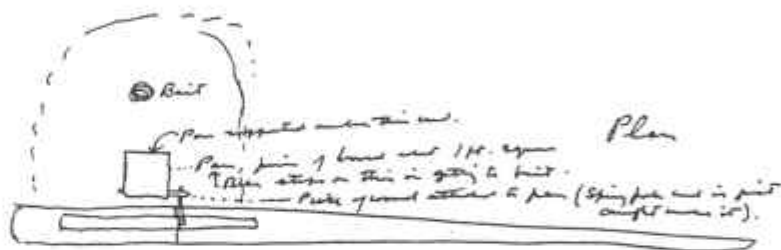 Bait
Pan supported under this end.
Plan
Pan, piece of board about 1 ft. square
Bear steps on this in getting to bait.
Peg of wood attached to pan (Spring pole end is just
caught under it).